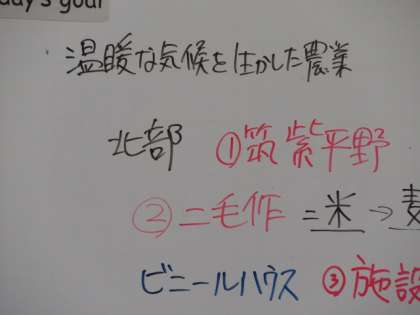 day's goal
・温暖な気候を生かした農業
北部 ①筑紫平野
②二毛作=米→麦
ビニールハウス ③施設